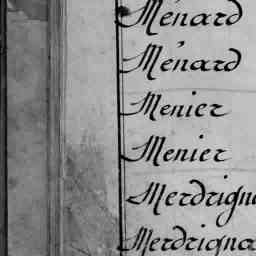 Ménard
Ménard
Menier
Menier
Merdrigna
Merdrigna